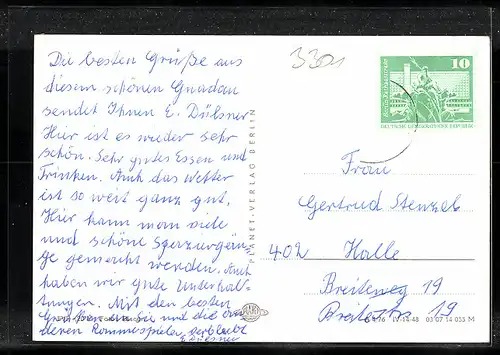 Die besten Grüße aus
diesem schönen Gnadau
sendet Ihnen E. Dülsner
Hier ist es wieder sehr
schön. Sehr gutes Essen und
Trinken. Auch das Wetter
ist so weit ganz gut.
Hier kann man viele
und schöne Spaziergän-
ge gemacht werden. Auch
haben wir gute Unterhal-
tungen. Mit den besten
Grüßen an Sie und die an-
deren Rommespieler verbleibt
E. Dülsner
PLANET-VERLAG BERLIN
3301
10
DEUTSCHE DEMOKRATISCHE REPUBLIK
Frau
Gertrud Stenzel
402 Halle
Breiteweg 19
Breitestr. 19
IV-14-48 03 07 14 035 M